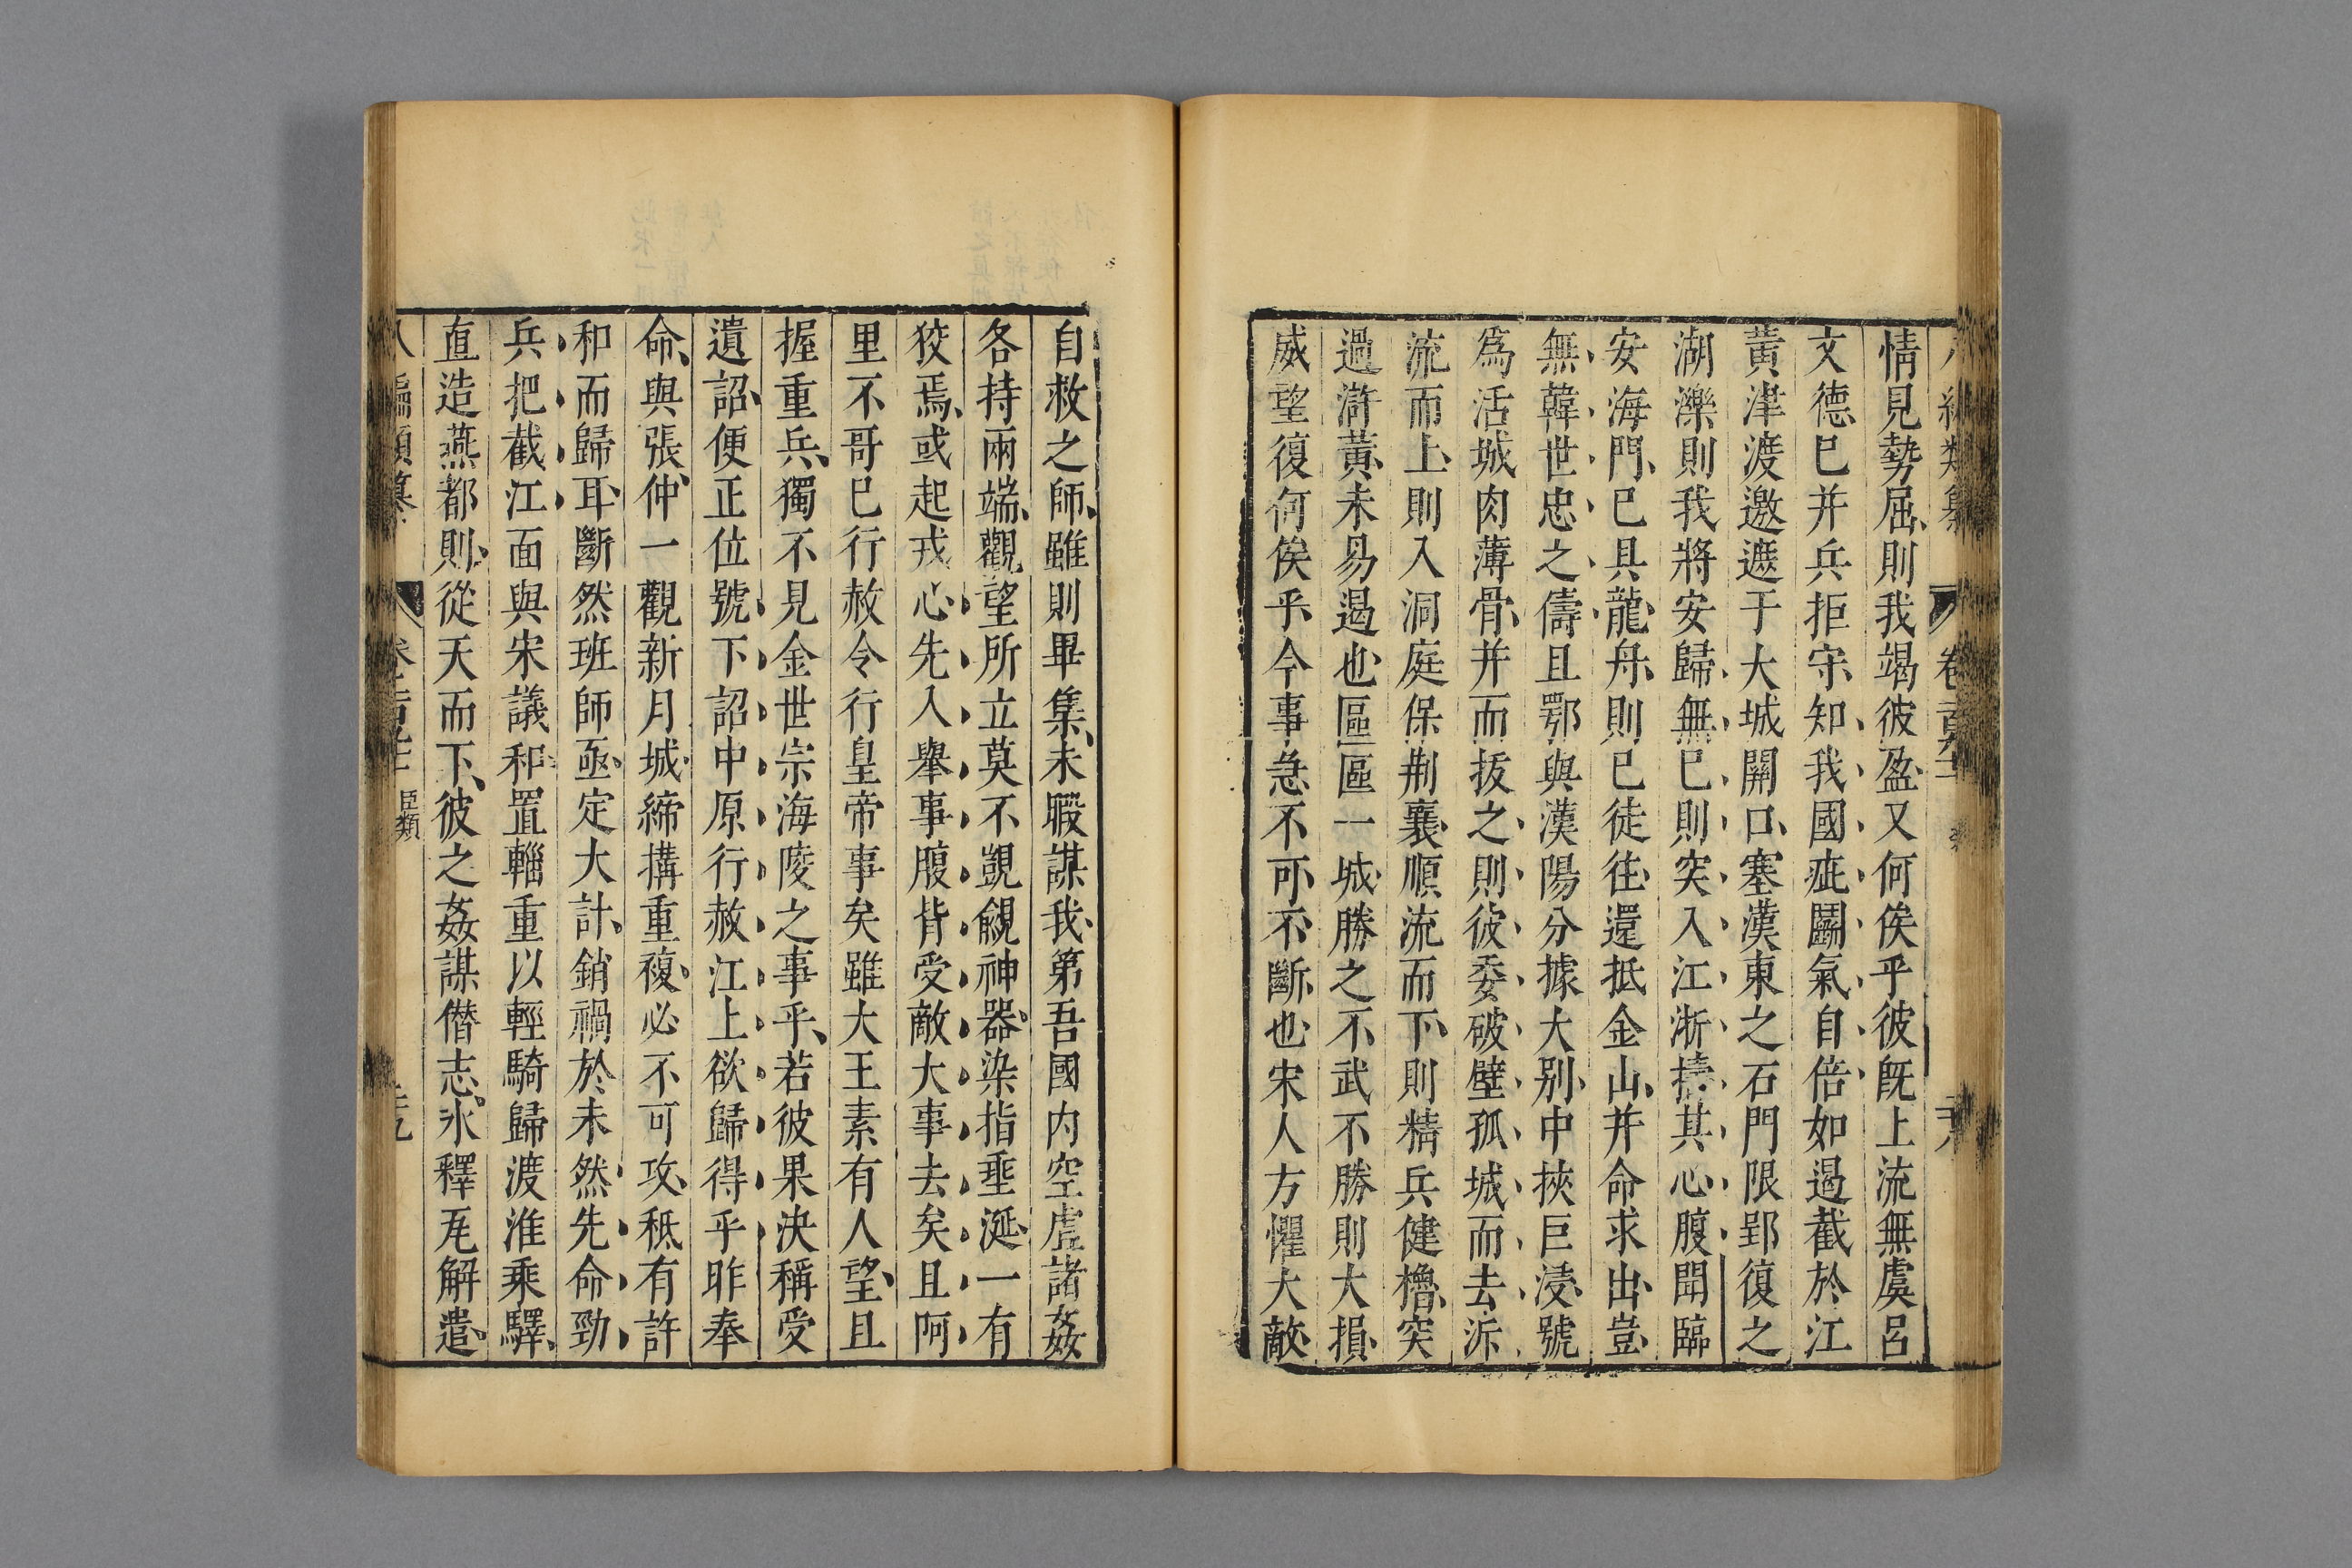 情見勢屈則我竭彼盈又何俟乎彼旣上流無虞呂
文德已并兵拒守知我國疵鬭氣自倍如遏截於江
黃津渡邀遮于大城關口塞漢東之石門限郢復之
湖濼則我將安歸無巳則突入江浙擣其心腹聞臨
安海門巳具龍舟則已徒往還抵金山并命求出豈
無韓世忠之儔且鄂與漢陽分據大別中挾巨浸號
爲活城肉薄骨并而拔之則彼委破壁孤城而去泝
流而上則入洞庭保荆襄順流而下則精兵健櫓突
過滸黃未易遏也區區一城勝之不武不勝則大損
威望復何俟乎今事急不可不斷也宋人方懼大敵
自救之師雖則畢集未暇謀我第吾國内空虛諸姦
各持兩端觀望所立莫不覬覦神器染指垂涎一有
狡焉或起戎心先人舉事腹背受敵大事去矣且阿
里不哥已行赦令行皇帝事矣雖大王素有人望且
握重兵獨不見金世宗海陵之事乎若彼果決稱受
遺詔便正位號下詔中原行赦江上欲歸得乎昨奉
命與張仲一觀新月城締搆重複必不可攻秪有許
和而歸耳斷然班師亟定大計銷禍於未然先命勁
兵把截江面與宋議和置輜重以輕騎歸渡淮乘驛
直造燕都則從天而下彼之姦謀僭志氷釋瓦解遣
八編類纂 臣類